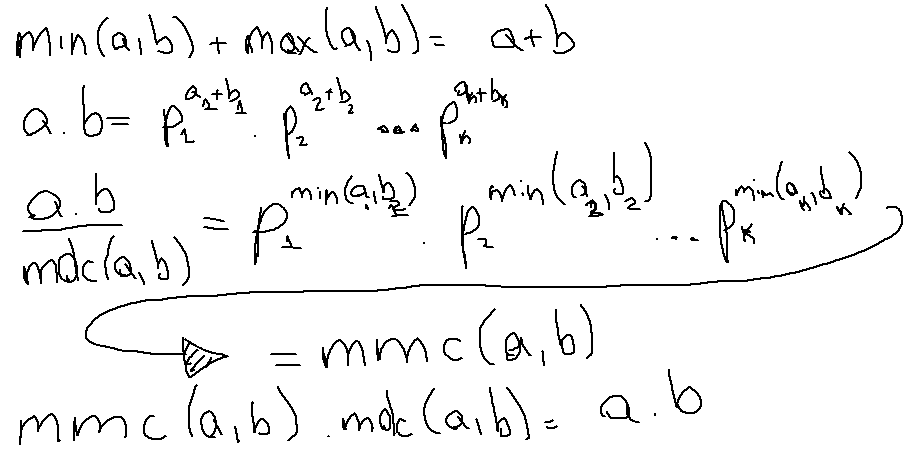 min(a,b) + max(a,b) = a+b
a.b = p₁^(a₁+b₁) . p₂^(a₂+b₂) ... pₖ^(aₖ+bₖ)
a.b / mdc(a,b) = p₁^min(a₁,b₁) . p₂^min(a₂,b₂) ... pₖ^min(aₖ,bₖ)
= mmc(a,b)
mmc(a,b) . mdc(a,b) = a.b